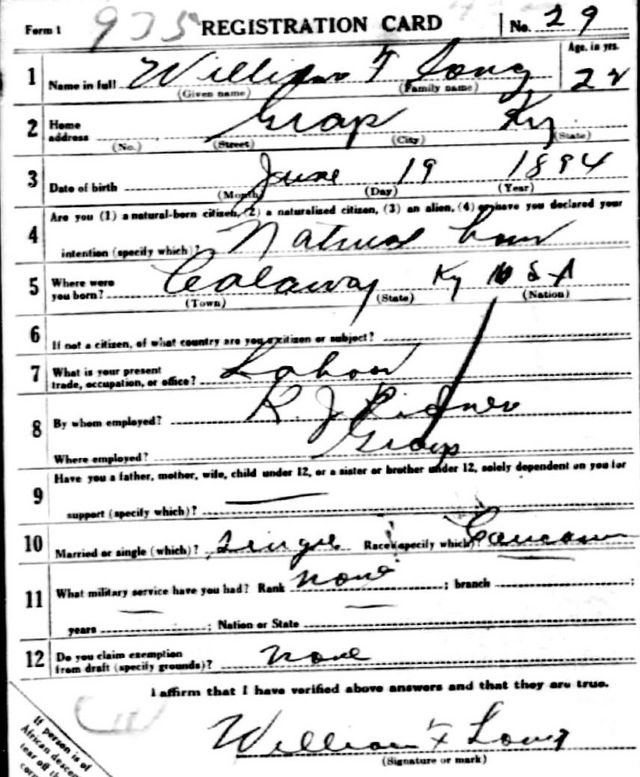 Form 1 935 REGISTRATION CARD No. 29
1 Name in full William F Long Age, in yrs. 22
(Given name) (Family name)
2 Home address Grap Ky
(No.) (Street) (City) (State)
3 Date of birth June 19 1894
(Month) (Day) (Year)
4 Are you (1) a natural-born citizen, (2) a naturalized citizen, (3) an alien, (4) or have you declared your
intention (specify which)? Natural born
5 Where were you born? Calaway Ky U S A
(Town) (State) (Nation)
6 If not a citizen, of what country are you a citizen or subject?
7 What is your present trade, occupation, or office? Labor
8 By whom employed? R. J.
Where employed?
9 Have you a father, mother, wife, child under 12, or a sister or brother under 12, solely dependent on you for
support (specify which)? —
10 Married or single (which)? Single Race (specify which)? Caucasian
11 What military service have you had? Rank none ; branch ;
years ; Nation or State
12 Do you claim exemption from draft (specify grounds)? none
I affirm that I have verified above answers and that they are true.
William F Long
(Signature or mark)
If person is of
African
tear off